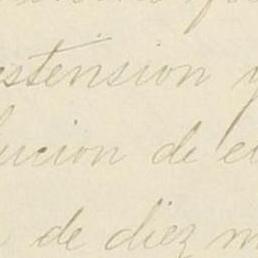 estension y
lucion de e
de diez m